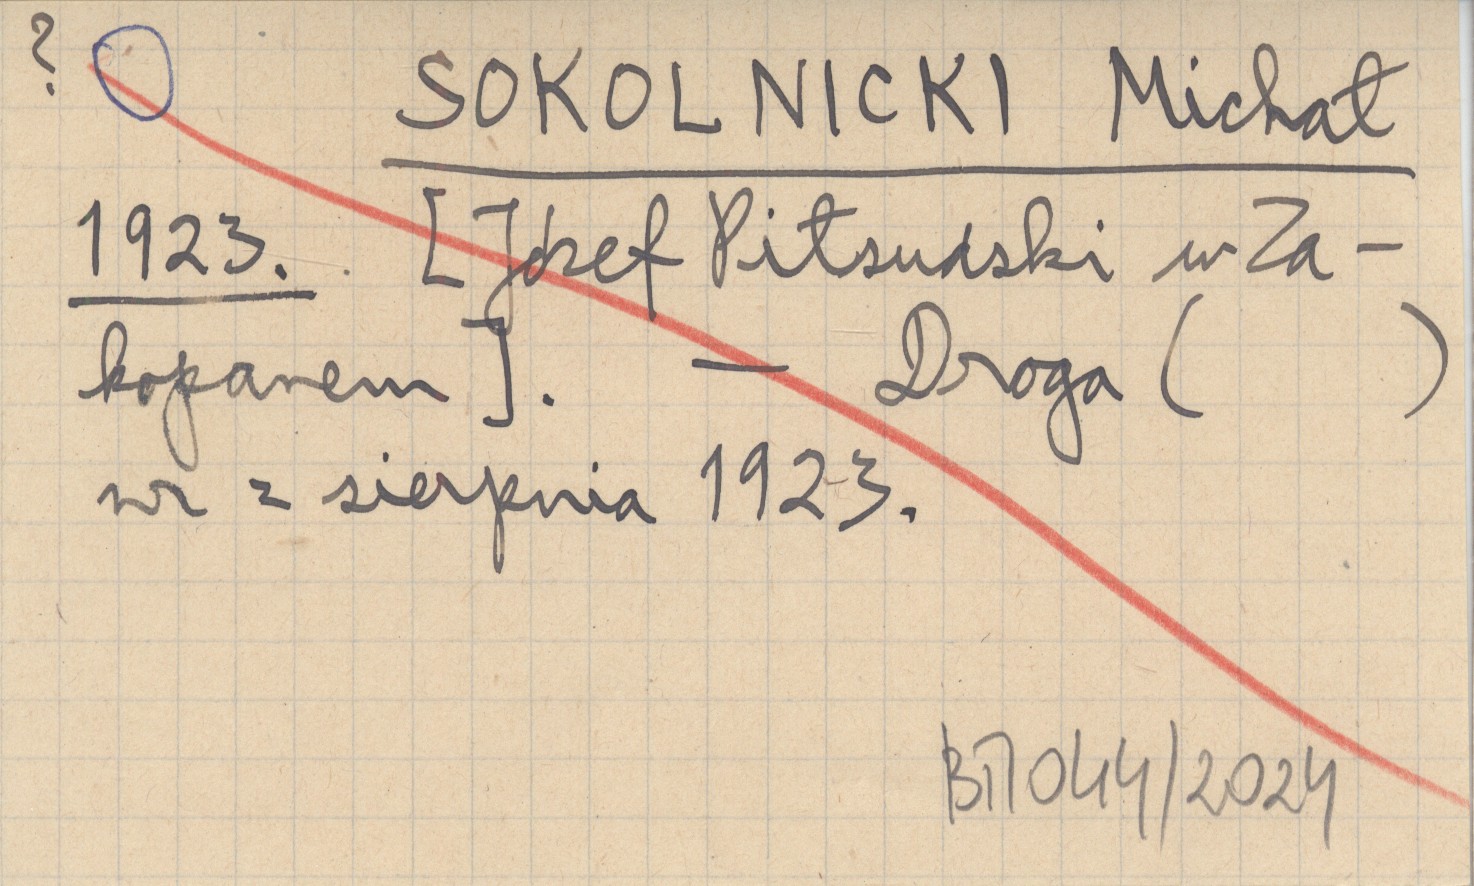 ? SOKOLNICKI Michał
1923. [Józef Piłsudski w Za-
kopanem]. — Droga ( )
nr z sierpnia 1923.
BTI 044/2024